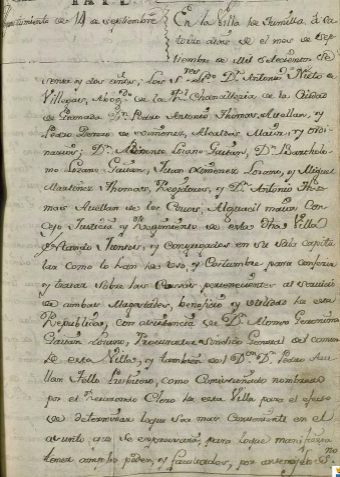 Ayuntamiento de 14 de septiembre
En la Villa de Jumilla á ca
torze dias de el mes de Sep
tiembre de Mil Setecientos se
senta y dos años; los Sres Dn. Antonio Nieto
Villegas, Abogdo de la Rl. Chancilleria de la Ciudad
de Granada, Dn. Pedro Antonio Thomas, Avellan, y
Pedro Perez de
Alcaldes Maior, y ordi
narios; Dn. Lozano Guardiola, Dn. Bartholo
me Lozano Juan Ximenez Lozano, y Miguel
Martinez Thomas, Rexidores, y Dn. Antonio Tho
mas Avellan de los Cuevas, Alguacil maior Con
cejo Justicia y Reximiento de esta dha Villa
estando Juntos, y Congregados en su Sala capitu
lar como lo han de Uso, y Costumbre para conferir
y tratar sobre las Cosas pertenecientes al servicio
de ambas Magestades, beneficio, y utilidad de esta
Republica, con asistencia de Dn. Alonso Geronimo
Procurador Sindico General del comun
de esta Villa, y tambien del Dn. Pedro Ave
llan Tello Presbitero, como Comisionado nombrado
por el Clero de esta Villa para el efecto
de determinar lo que sea mas Conveniente en el
asunto, que se expresará, para lo que manifiesta
tener amplio poder, y facultades, por